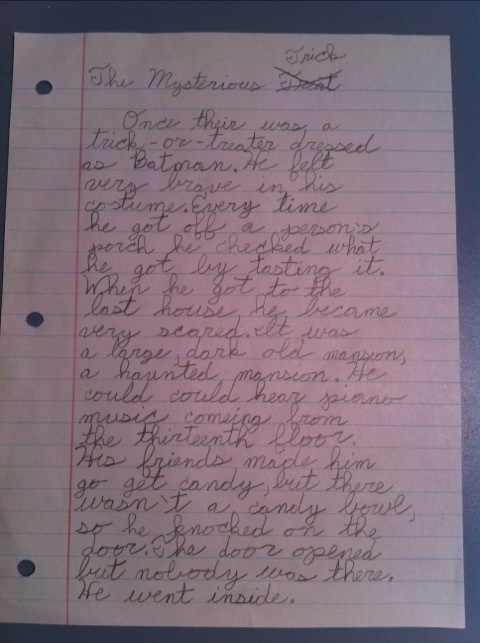 Trick
The Mysterious Treat
Once their was a
trick-or-treater dressed
as Batman. He felt
very brave in his
costume. Every time
he got off a person's
porch he checked what
he got by tasting it.
When he got to the
last house, he became
very scared. It was
a large, dark old mansion,
a haunted mansion. He
could could hear piano
music comeing from
the thirteenth floor.
His friends made him
go get candy, but there
wasn't a candy bowl,
so he knocked on the
door. The door opened
but nobody was there.
He went inside.